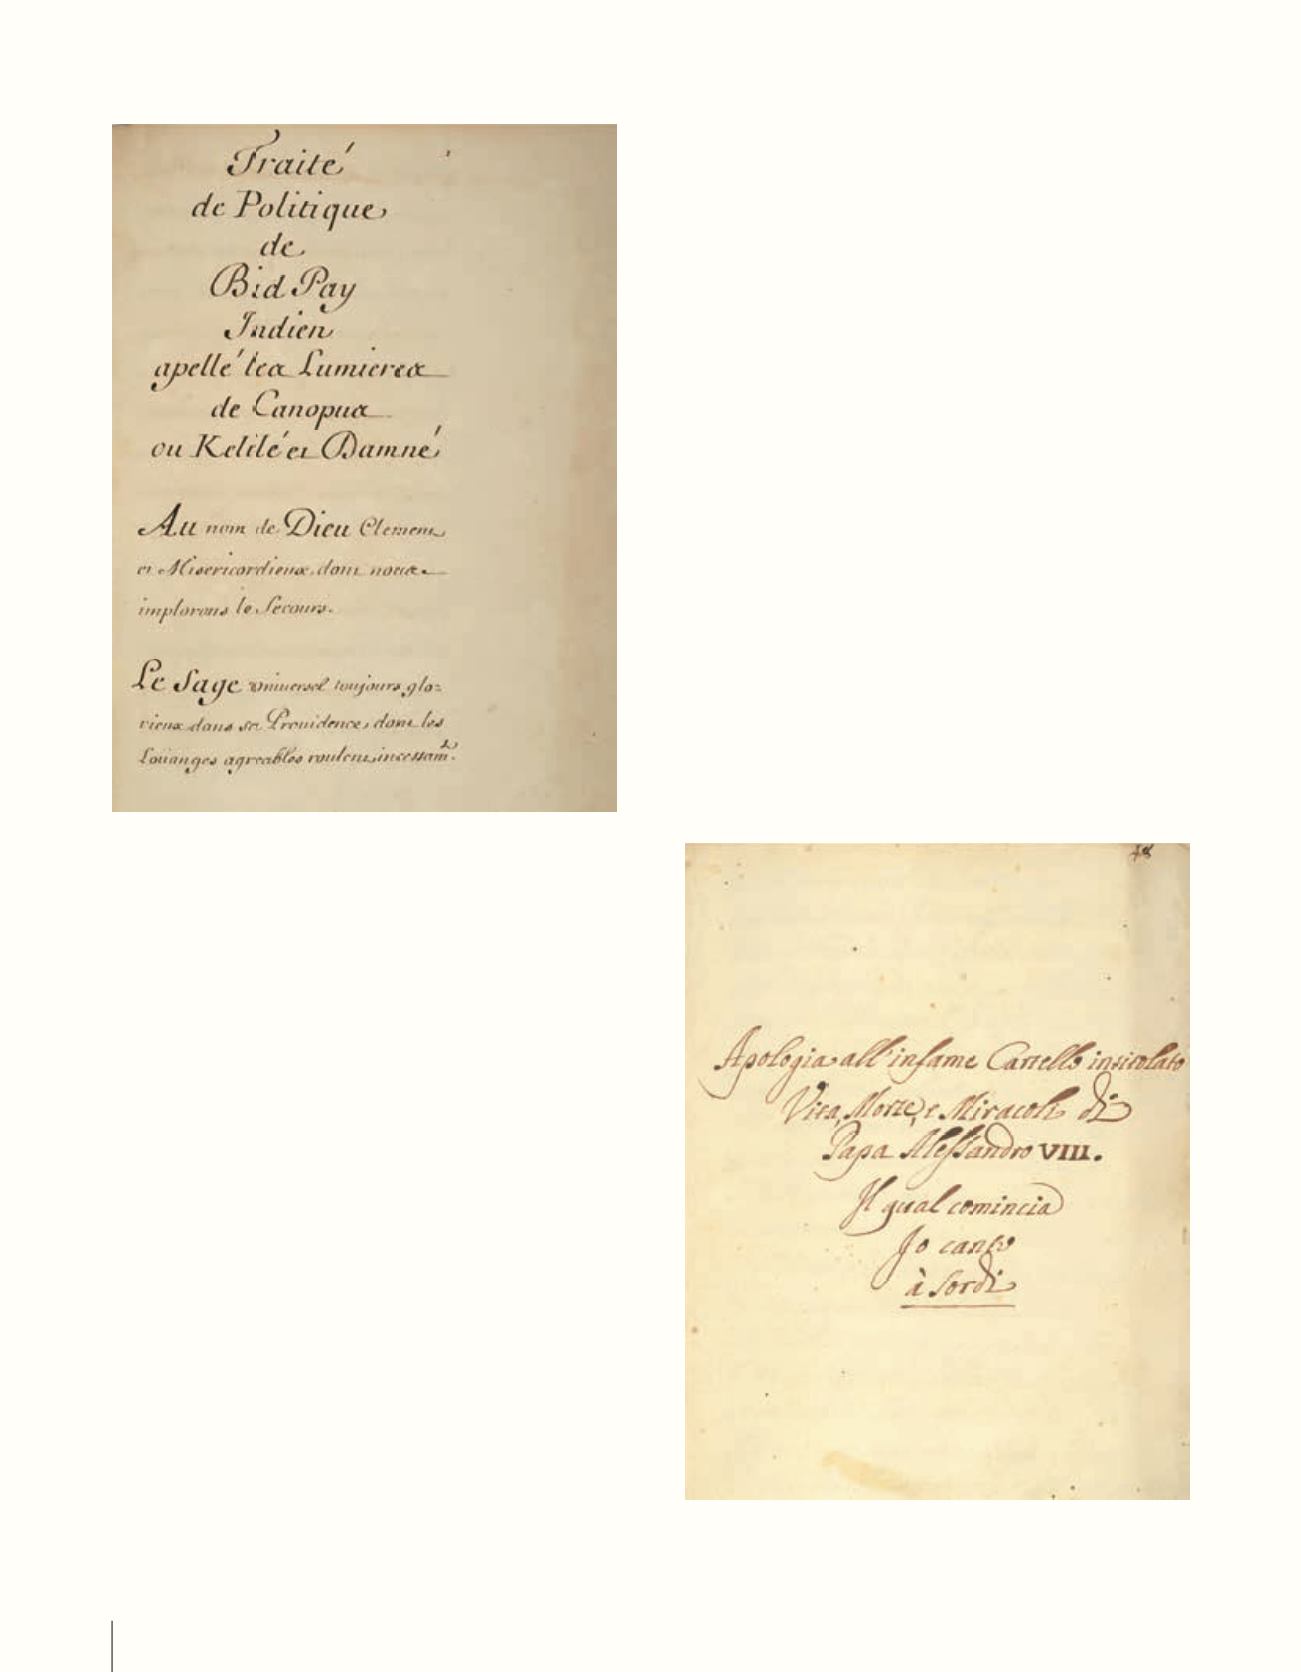 Traité
de Politique
de
Bid Pay
Indien
apellé les Lumieres
de Canopus
ou Kelilé et Damné
Au nom de Dieu Clement
et Misericordieux, dont nous
implorons le Secours.
Le Sage universel toujours glo=
rieux dans sa Providence, dont les
Loüanges agreables roulent incessam.t
48
Apologia all'infame Cartello intitolato
Vita, Morte, e Miracoli di
Papa Alessandro VIII.
Il qual comincia
Io canto
à sordi